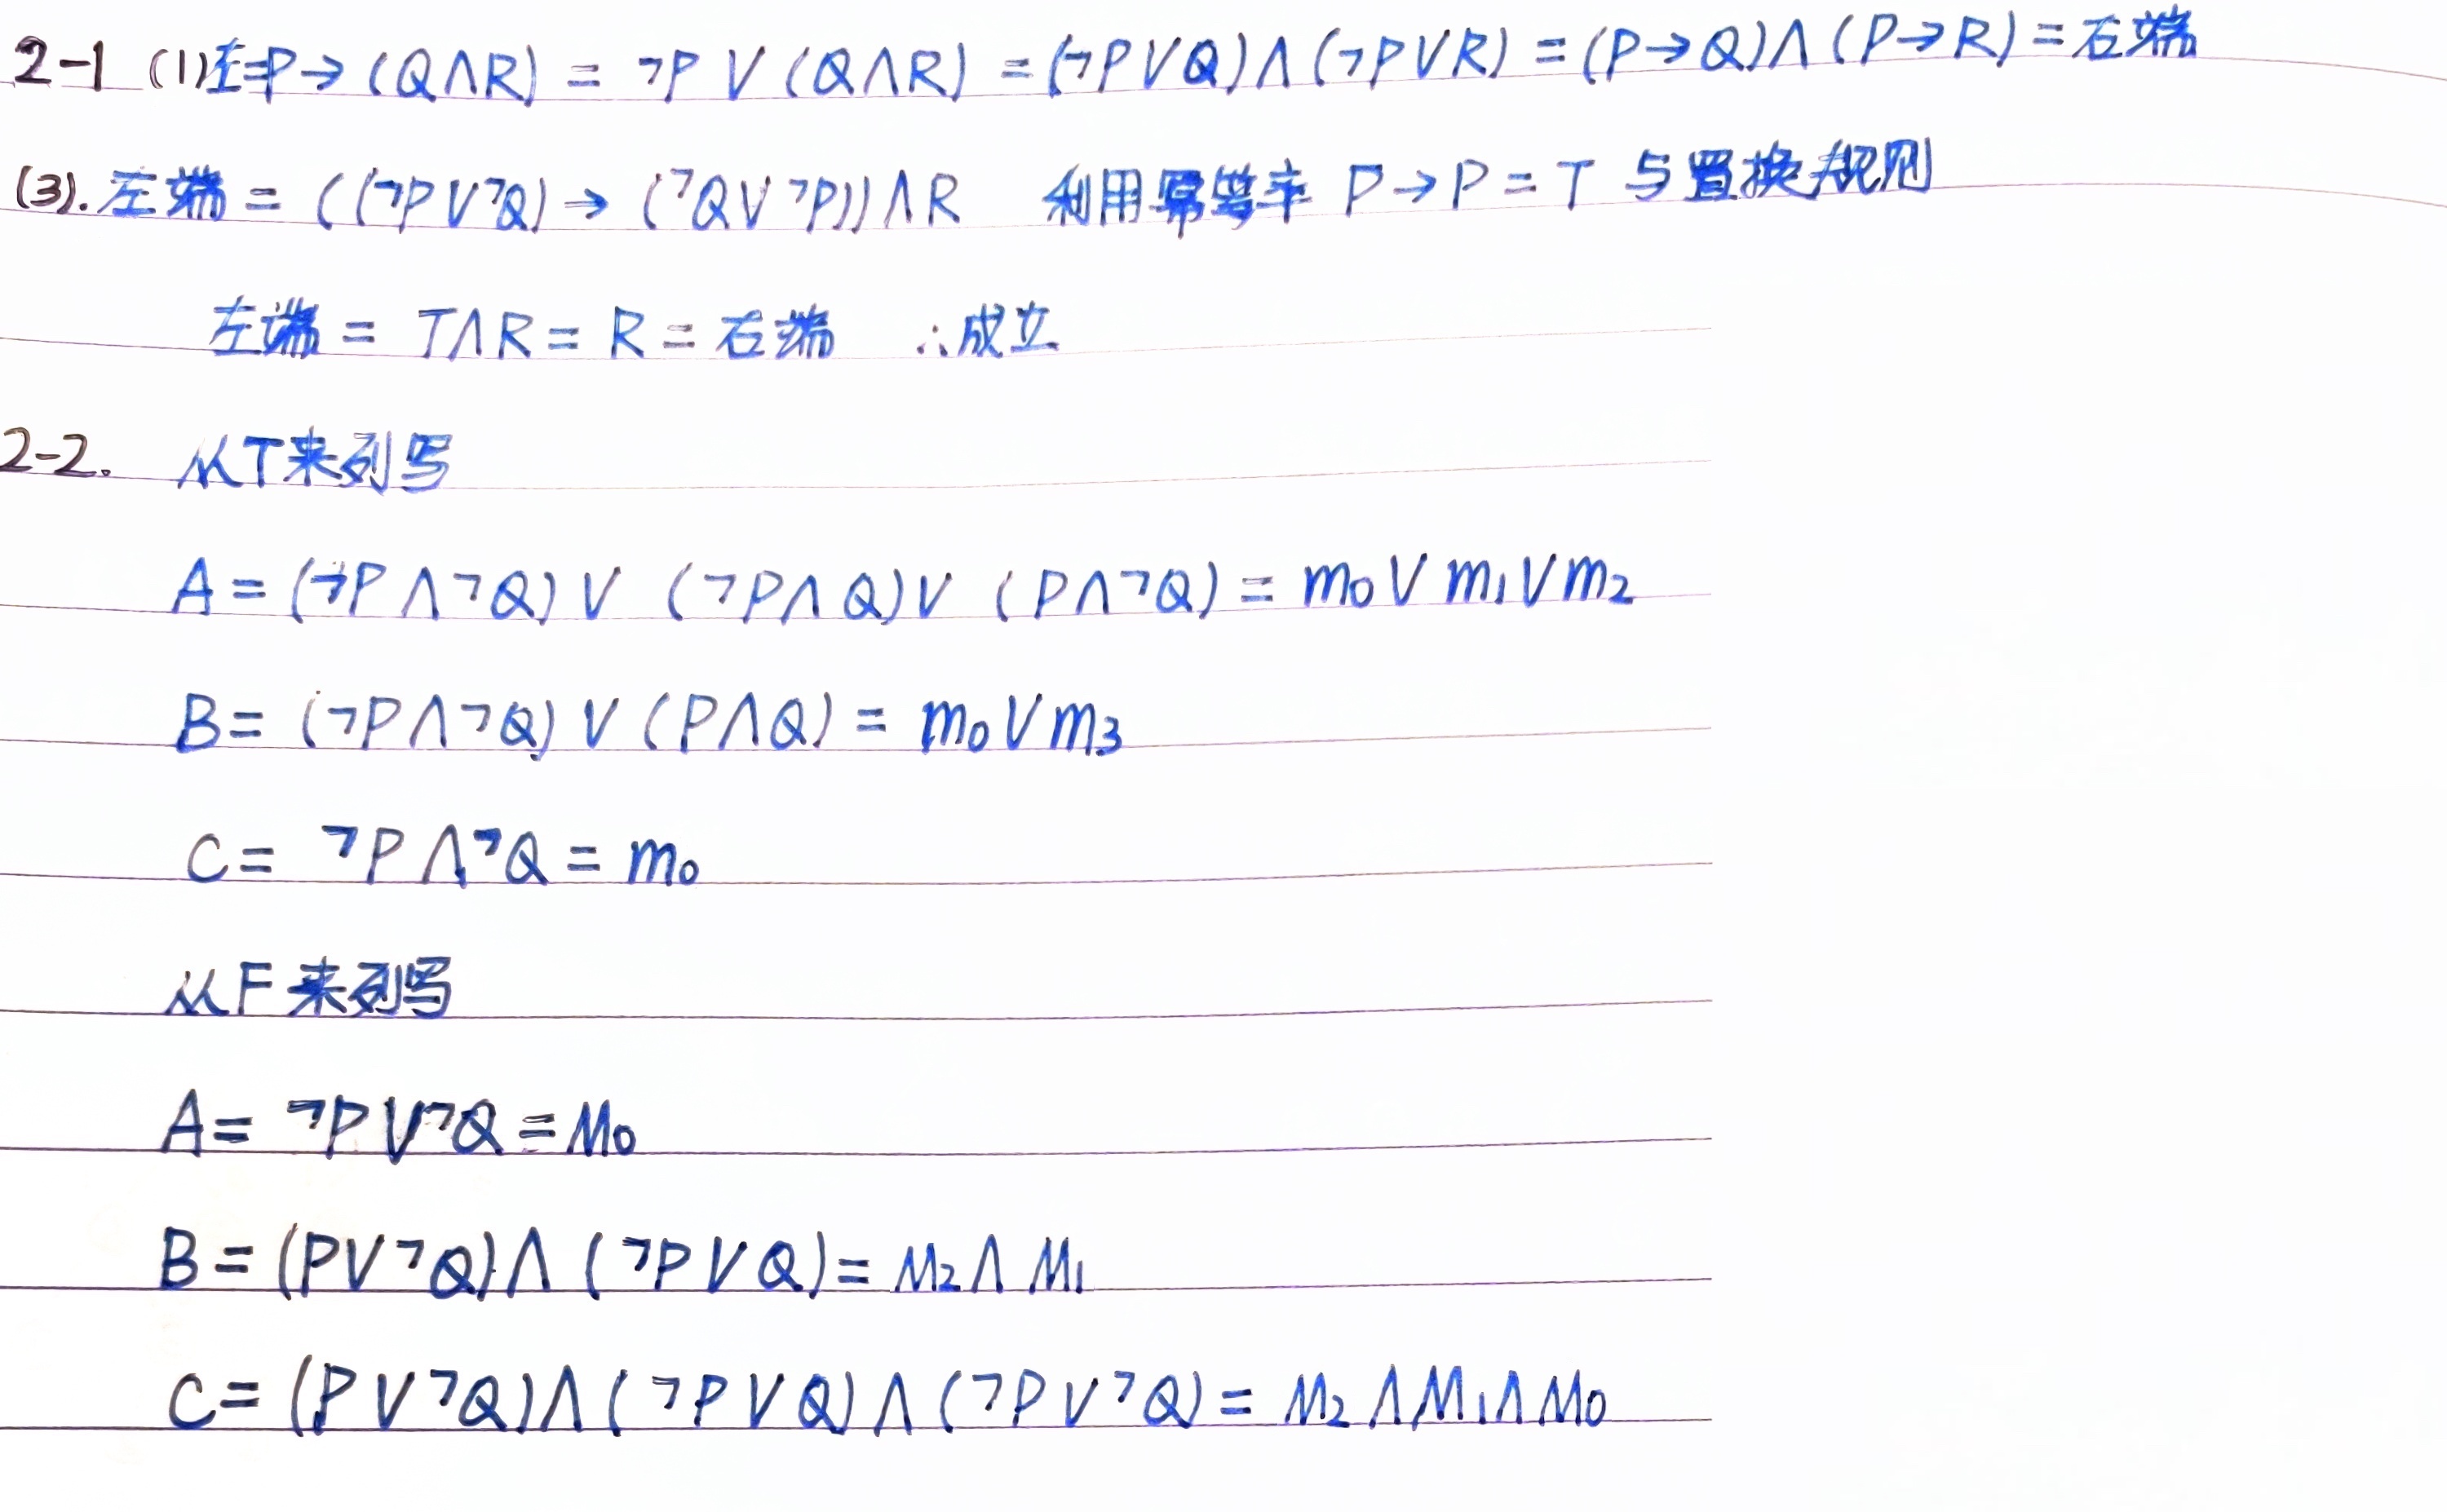 2-1 (1)左=P→(Q∧R) = ¬P∨(Q∧R) = (¬P∨Q)∧(¬P∨R) = (P→Q)∧(P→R) = 右端
(3). 左端 = ((¬P∨¬Q)→(¬Q∨¬P))∧R 利用幂等率 P→P=T 与置换规则
左端 = T∧R = R = 右端 ∴成立
2-2. 从T来列写
A = (¬P∧¬Q)∨(¬P∧Q)∨(P∧¬Q) = m₀∨m₁∨m₂
B = (¬P∧¬Q)∨(P∧Q) = m₀∨m₃
C = ¬P∧¬Q = m₀
从F来列写
A = ¬P∨¬Q = M₀
B = (P∨¬Q)∧(¬P∨Q) = M₂∧M₁
C = (P∨¬Q)∧(¬P∨Q)∧(¬P∨¬Q) = M₂∧M₁∧M₀